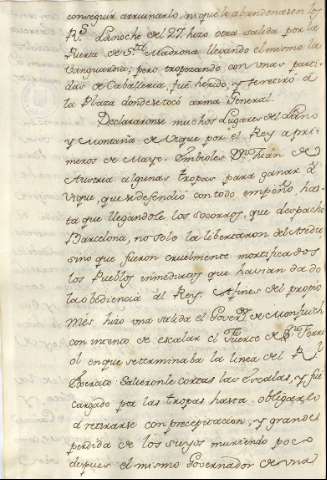 conseguir arruinarlo, ni que le abandonasen los
R.s La noche del 27 hizo otra salida por la
Puerta de S.ta Madrona llevando el mismo la
Vanguardia; pero tropezando con una parti-
da de Cavalleria, fue herido, y se retiró â
la Plaza donde se tocó arma General.
Declararonse muchos Lugares del Llano
y Montaña de Vique por el Rey a pri-
meros de Mayo. Embioles D.n Juan de
Austria algunas tropas para ganar â
Vique, que se defendió con todo empeño, has-
ta que llegandole los socorros, que despachó
Barcelona, no solo la libertaron del Asedio
sino que fueron cruelmente mortificados
los Pueblos inmediatos que havian dado
la obediencia al Rey. A fines del propio
Mes hizo una salida el Gover.or de Monjuich
con animo de escalar el Fuerte de S.n Ferri
ol en que se terminaba la linea del R.l
Exercito. Salieronle cortas las Escalas, y fue
cargado por las tropas hasta obligarlo
a retirarse con precepitacion, y grande
perdida de los suyos muriendo poco
despues el mismo Governador de una